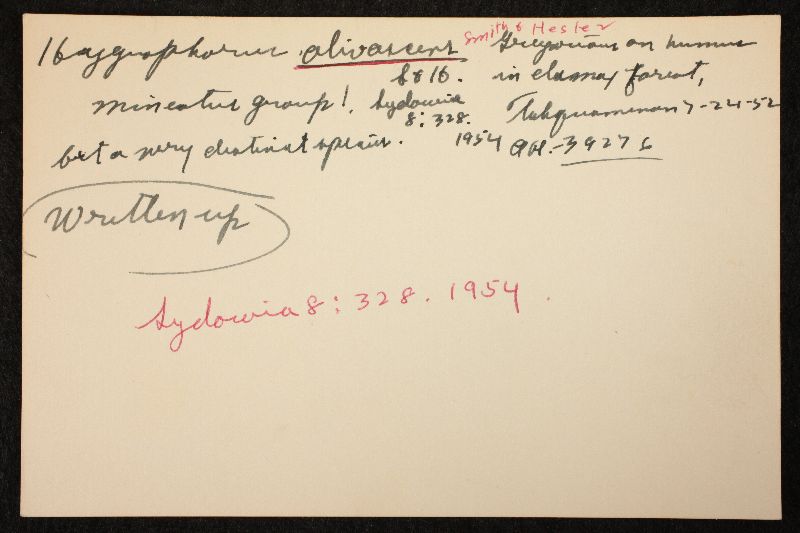 Hygrophorus olivascens Smith & Hesler Gregarious on humus
S & H. in elm-maple forest,
miniatus group! Sydowia Tahquamenon 7-24-52
8: 328.
but a very distinct species. 1954 AH.-39276
Written up
Sydowia 8: 328. 1954.